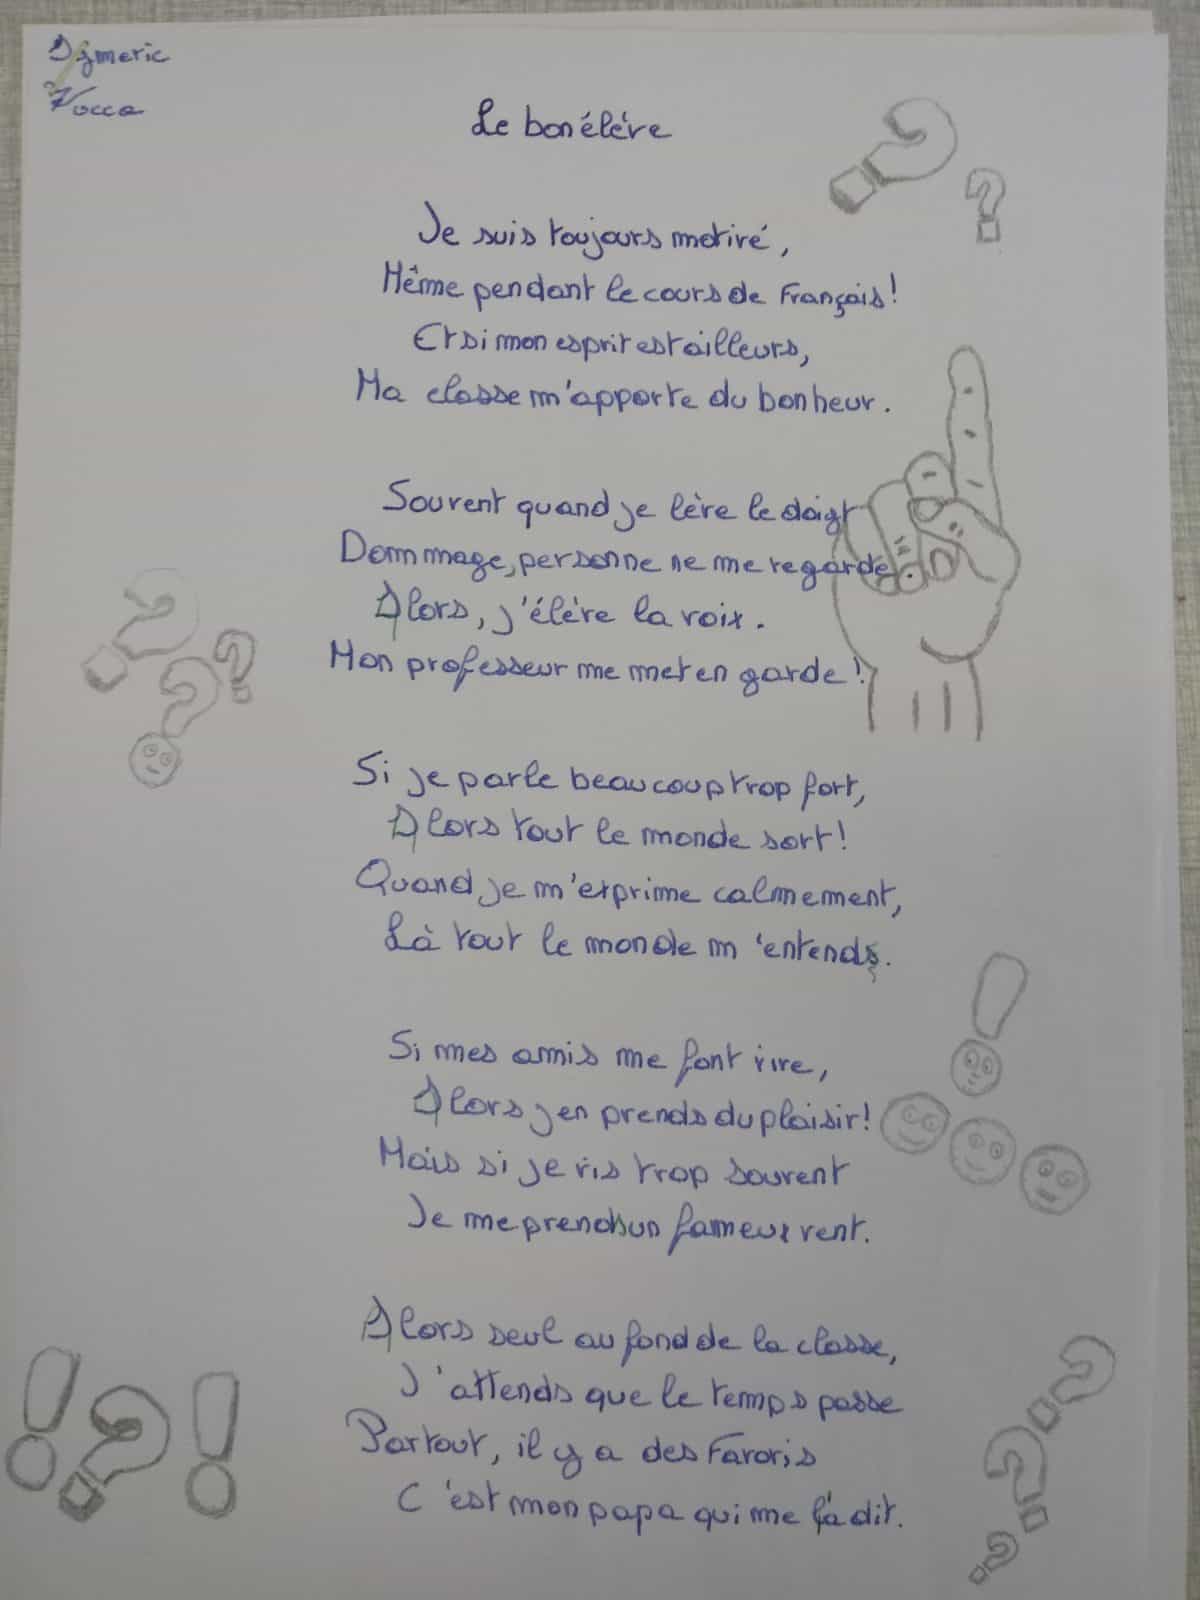 Aymeric
Vocca
Le bon élève
Je suis toujours motivé,
Même pendant le cours de Français!
Et si mon esprit est ailleurs,
Ma classe m'apporte du bonheur.
Souvent quand je lève le doigt
Dommage, personne ne me regarde
Alors, j'élève la voix.
Mon professeur me met en garde!
Si je parle beaucoup trop fort,
Alors tout le monde sort!
Quand je m'exprime calmement,
Là tout le monde m'entends.
Si mes amis me font rire,
Alors j'en prends du plaisir!
Mais si je ris trop souvent
Je me prends un fameux vent.
Alors seul au fond de la classe,
J'attends que le temps passe
Partout, il y a des Favoris
C'est mon papa qui me l'a dit.